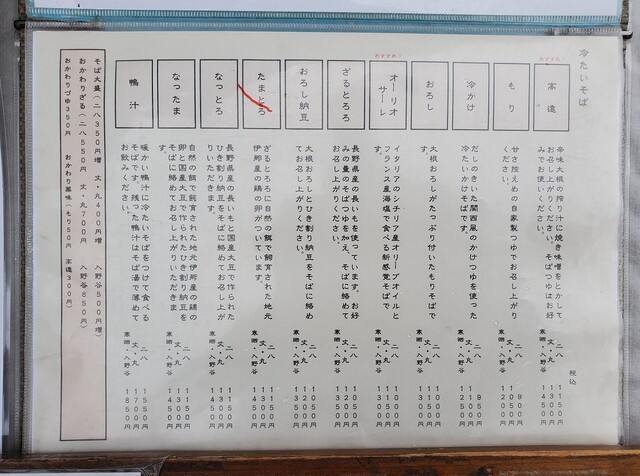 冷たいそば
税込
おすすめ!
高遠
辛味大根の搾り汁に焼き味噌をとかして
お召し上がりください。そばつゆはお好
みでお使いください。
二八
丈・丸
寒晒・入野谷
もり
甘さ控えめの自家製つゆでお召し上がり
ください。
二八 900円
丈・丸 1050円
寒晒・入野谷 1200円
冷かけ
だしのきいた関西風のかけつゆを使った
冷たいかけそばです。
二八 950円
丈・丸
寒晒・入野谷
おろし
大根おろしがたっぷり付いたもりそばで
す。
二八
丈・丸
寒晒・入野谷
おすすめ!
オーリオ
サーレ
イタリアのシチリア産オリーブオイルと
フランス産海塩で食べる新感覚そばで
す。
二八
丈・丸
寒晒・入野谷
ざるとろろ
長野県産の長いもを使っています。お好
みの量のそばつゆを加え、そばに絡めて
お召し上がりください。
二八
丈・丸
寒晒・入野谷
おろし納豆
大根おろしとひき割り納豆をそばに絡め
てお召し上がりください。
二八
丈・丸
寒晒・入野谷
たまとろ
ざるとろろに自然の餌で飼育された地元
伊那産の鶏の卵がついています。
二八
丈・丸
寒晒・入野谷
なっとろ
長野県産の長いもと国産大豆で作られた
ひき割り納豆をそばに絡めてお召し上が
りいただきます。
二八 1150円
丈・丸 1300円
寒晒・入野谷 1450円
なったま
自然の餌で飼育された地元伊那産の鶏の
卵と国産大豆で作られたひき割り納豆を
そばに絡めてお召し上がりいただきま
す。
二八 1150円
丈・丸 1300円
寒晒・入野谷 1450円
鴨汁
暖かい鴨汁に冷たいそばをつけて食べる
そばです。残った鴨汁はそば湯で薄めて
お飲みください。
二八 1550円
丈・丸 1700円
寒晒・入野谷 1850円
そば大盛(二八350円増 丈・丸400円増 入野谷500円増)
おかわりざる(二八550円 丈・丸700円 入野谷850円)
おかわりつゆ350円 おかわり薬味(もり50円 高遠300円)